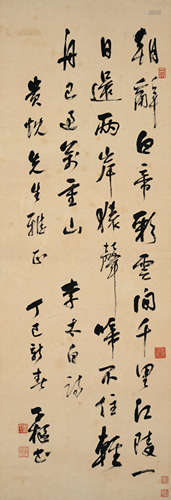 朝辭白帝彩雲間千里江陵一
日還兩岸猿聲啼不住輕
舟已過萬重山 李太白詩
貴悅先生雅正 丁巳新春